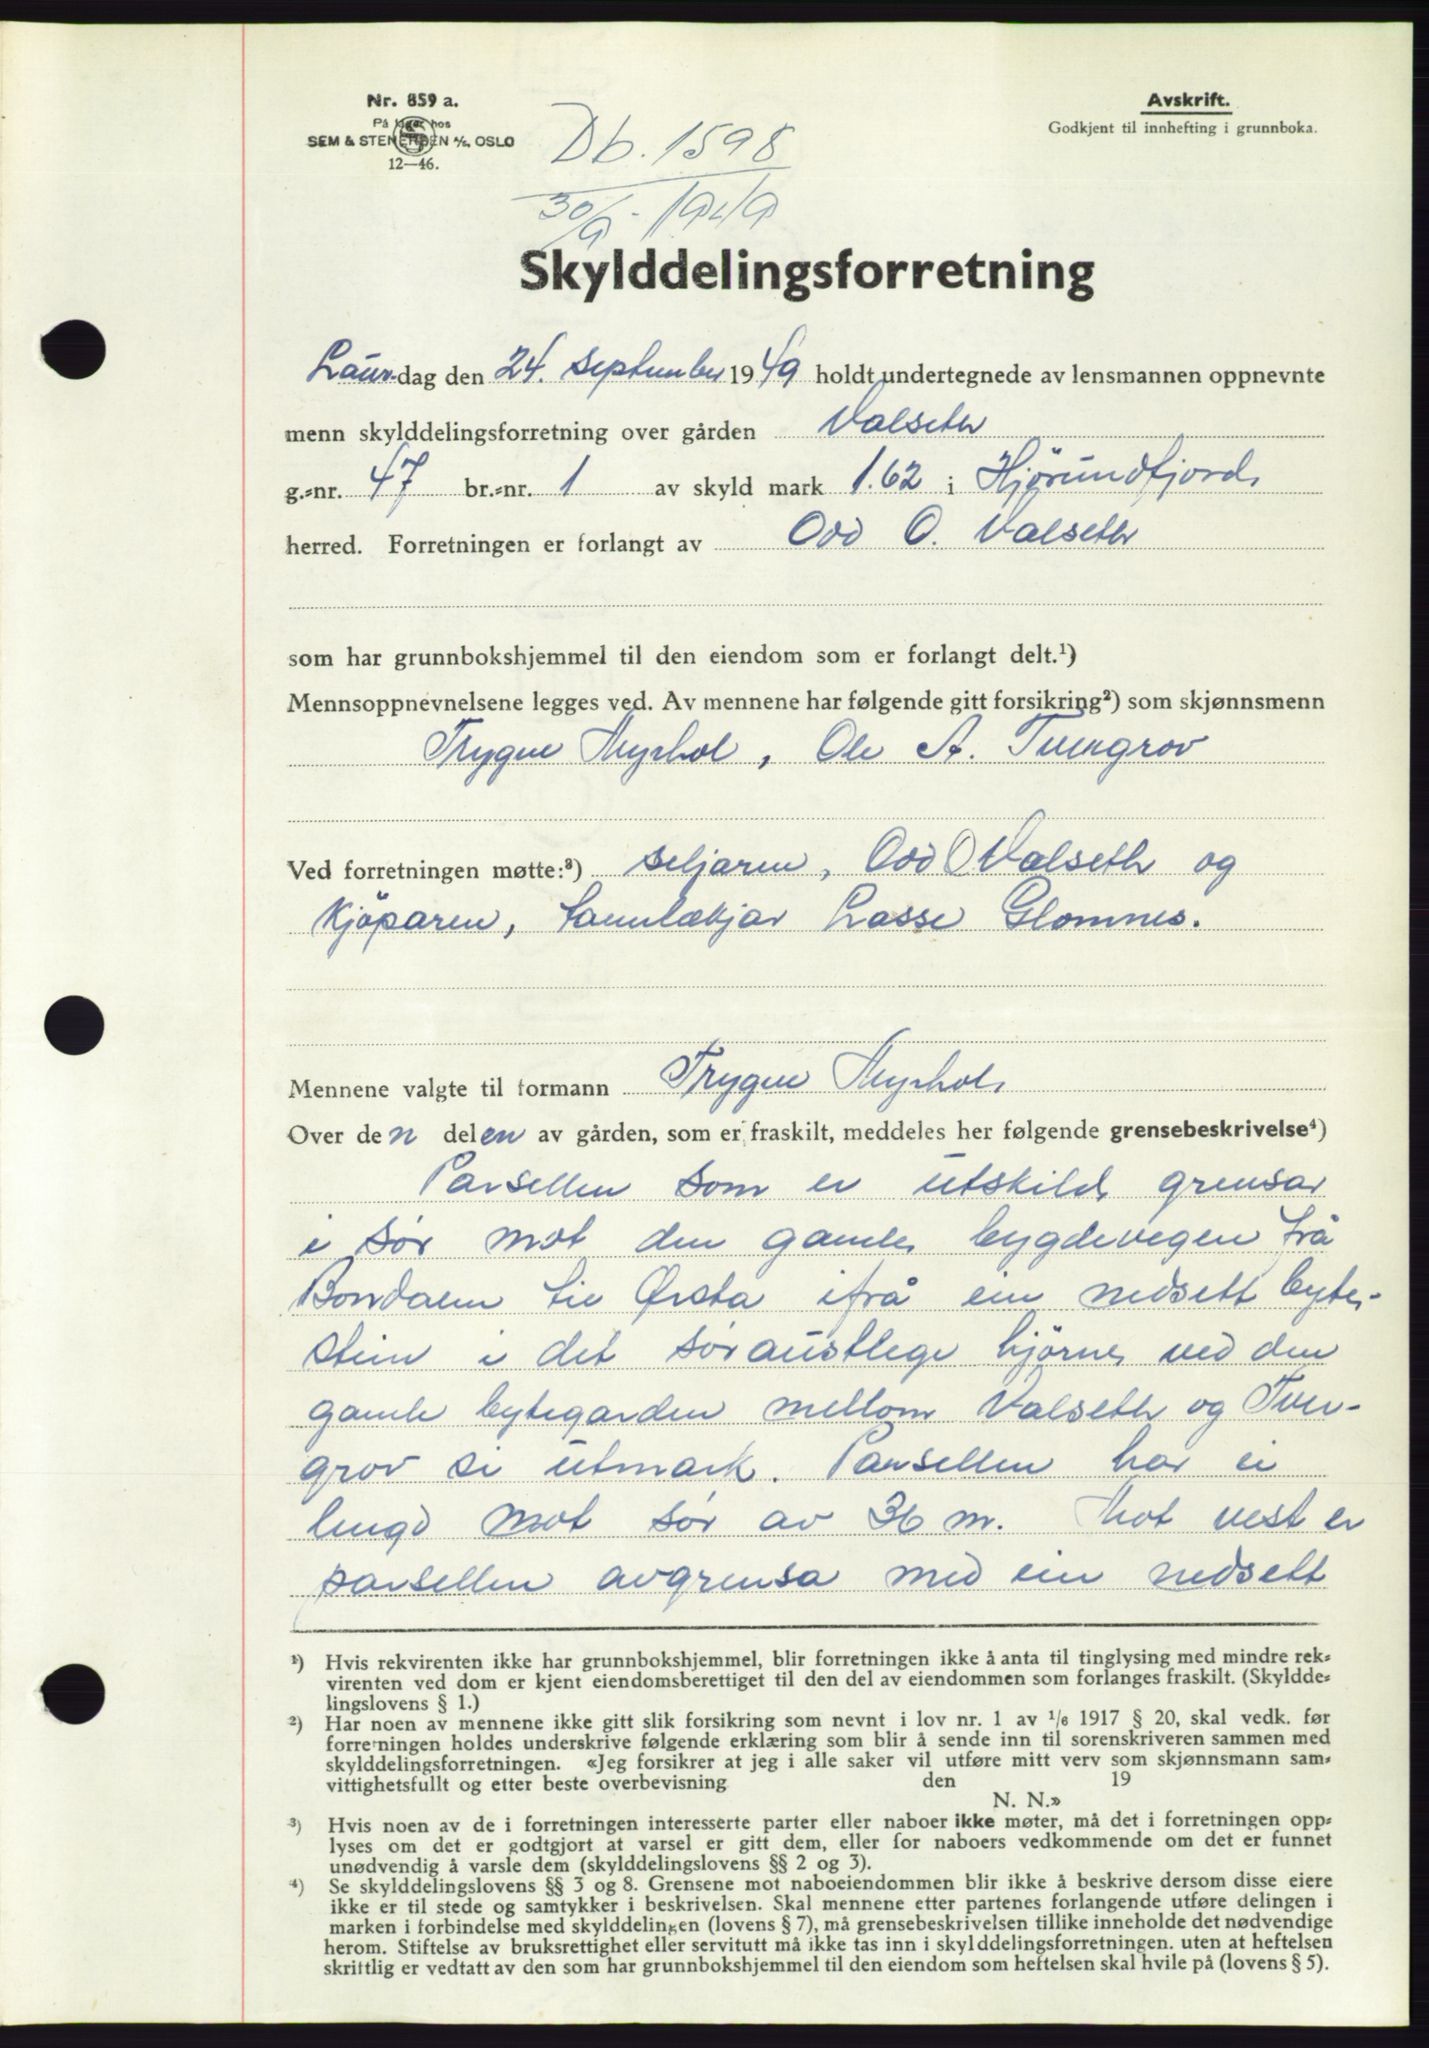 Nr. 859 a.
På lager hos
SEM & STENERSEN A/S, OSLO
12—46.
Avskrift.
Godkjent til innhefting i grunnboka.
Db. 1598
30/9 - 1949
Skylddelingsforretning
Laurdag den 24. september 1949 holdt undertegnede av lensmannen oppnevnte
menn skylddelingsforretning over gården Valseth
g.=nr. 47 br.=nr. 1 av skyld mark 1.62 i Hjørundfjord
herred. Forretningen er forlangt av Odd O. Valseth
som har grunnbokshjemmel til den eiendom som er forlangt delt.¹)
Mennsoppnevnelsene legges ved. Av mennene har følgende gitt forsikring²) som skjønnsmenn
Trygve Myrhol, Ole A. Tverrgrov
Ved forretningen møtte:³) seljaren, Odd O Valseth og
kjöparen, tannlækjar Lasse Glomnes.
Mennene valgte til formann Trygve Myrhol
Over den delen av gården, som er fraskilt, meddeles her følgende grensebeskrivelse⁴)
Parsellen som er utskild grensar
i sør mot den gamle bygdevegen frå
Bondalen til Ørsta ifrå ein nedsett byte-
stein i det søraustlege hjørne ved den
gamle bytegarden mellom Valseth og Tver-
grov si utmark. Parsellen har ei
lengd mot sør av 36 m. Mot vest er
parsellen avgrensa med ein nedsett
¹) Hvis rekvirenten ikke har grunnbokshjemmel, blir forretningen ikke å anta til tinglysing med mindre rek=
virenten ved dom er kjent eiendomsberettiget til den del av eiendommen som forlanges fraskilt. (Skyldde=
lingslovens § 1.)
²) Har noen av mennene ikke gitt slik forsikring som nevnt i lov nr. 1 av 1/6 1917 § 20, skal vedk. før
forretningen holdes underskrive følgende erklæring som blir å sende inn til sorenskriveren sammen med
skylddelingsforretningen. «Jeg forsikrer at jeg i alle saker vil utføre mitt verv som skjønnsmann sam=
vittighetsfullt og etter beste overbevisning den 19
N. N.»
³) Hvis noen av de i forretningen interesserte parter eller naboer ikke møter, må det i forretningen opp=
lyses om det er godtgjort at varsel er gitt dem, eller for naboers vedkommende om det er funnet
unødvendig å varsle dem (skylddelingslovens §§ 2 og 3).
⁴) Se skylddelingslovens §§ 3 og 8. Grensene mot naboeiendommen blir ikke å beskrive dersom disse eiere
ikke er til stede og samtykker i beskrivelsen. Skal mennene etter partenes forlangende utføre delingen i
marken i forbindelse med skylddelingen (lovens § 7), må grensebeskrivelsen tillike inneholde det nødvendige
herom. Stiftelse av bruksrettighet eller servitutt må ikke tas inn i skylddelingsforretningen. uten at heftelsen
skriftlig er vedtatt av den som har grunnbokshjemmel til den eiendom som heftelsen skal hvile på (lovens § 5).